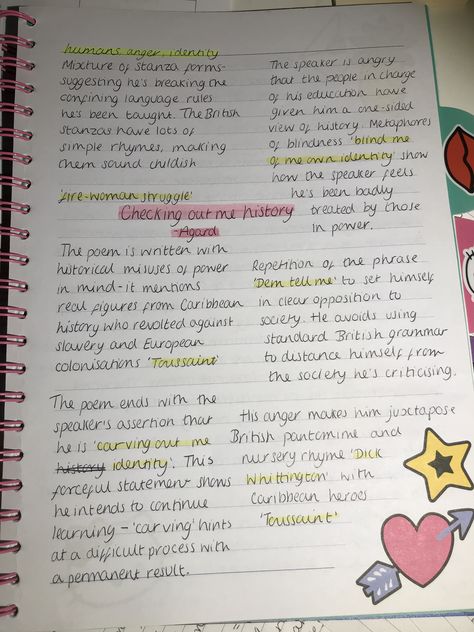 humans, anger, identity
Mixture of stanza forms-
suggesting he's breaking the
confining language rules
he's been taught. The British
stanzas have lots of
simple rhymes, making
them sound childish
The speaker is angry
that the people in charge
of his education have
given him a one-sided
view of history. Metaphores
of blindness 'blind me
of me own identity' show
how the speaker feels
he's been badly
treated by those
in power.
'fire-woman struggle'
Checking out me history
-Agard
The poem is written with
historical misuses of power
in mind-it mentions
real figures from Caribbean
history who revolted against
slavery and European
colonisations 'Toussaint'
Repetition of the phrase
'Dem tell me' to set himself
in clear opposition to
society. He avoids using
standard British grammar
to distance himself from
the society he's criticising.
The poem ends with the
speaker's assertion that
he is 'carving out me
history identity'. This
forceful statement shows
he intends to continue
learning - 'carving' hints
at a difficult process with
a permanent result.
His anger makes him juxtapose
British pantomine and
nursery rhyme 'Dick
Whittington' with
Caribbean heroes
'Toussaint'